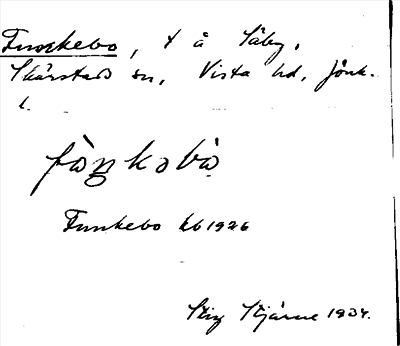 Funkebo, t å Säby,
Skärstads sn, Vista hd, Jönk.
l.
fàŋkəbò
Funkebo kb 1926
Stig Stjärne 1934.